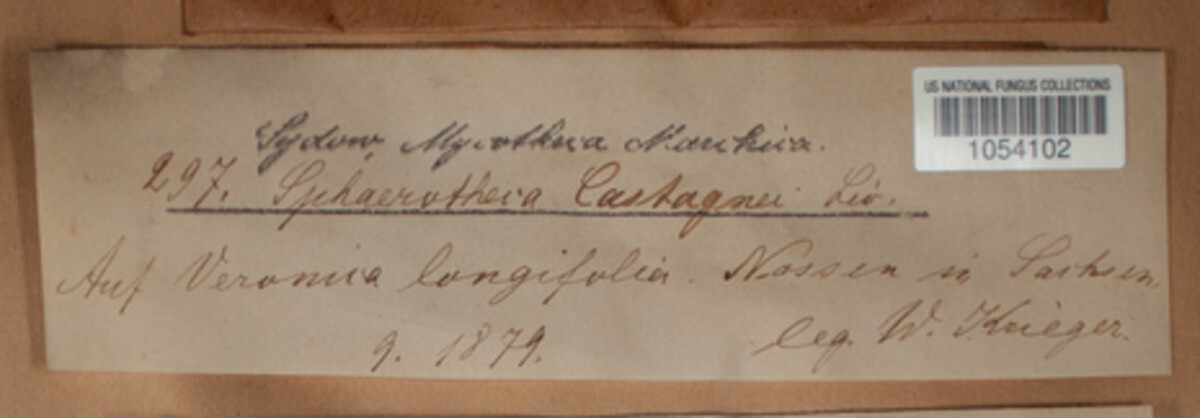 US NATIONAL FUNGUS COLLECTIONS
1054102
Sydow, Mycotheca Marchica.
297. Sphaerotheca Castagnei Lév.
Auf Veronica longifolia. Nossen in Sachsen,
9. 1879.
leg. W. Krieger.